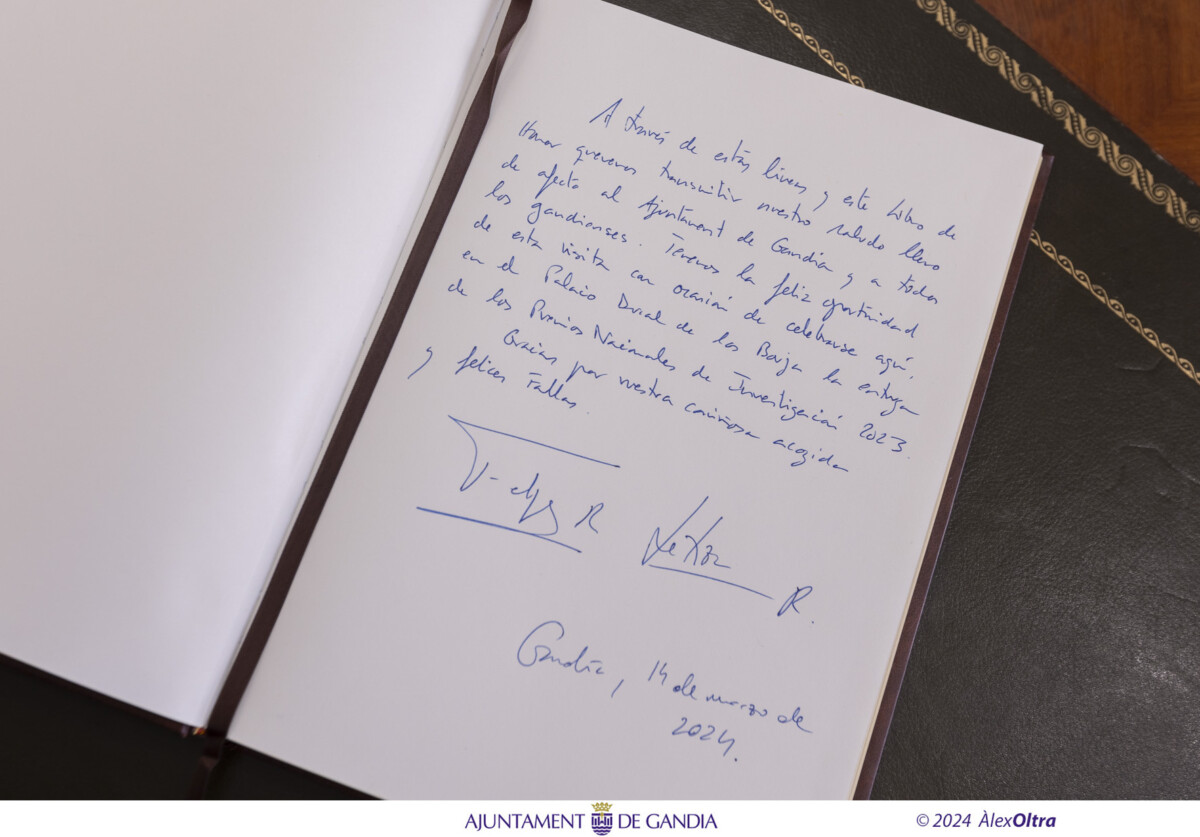 A través de estas líneas y este Libro de
Honor queremos transmitir nuestro saludo lleno
de afecto al Ajuntament de Gandia y a todos
los gandienses. Tenemos la feliz oportunidad
de esta visita con ocasión de celebrarse aquí,
en el Palacio Ducal de los Borja la entrega
de los Premios Nacionales de Investigación 2023.
Gracias por vuestra cariñosa acogida
y felices Fallas.
R
Letizia R.
Gandía, 14 de marzo de
2024.
AJUNTAMENT DE GANDIA
© 2024 ÀlexOltra